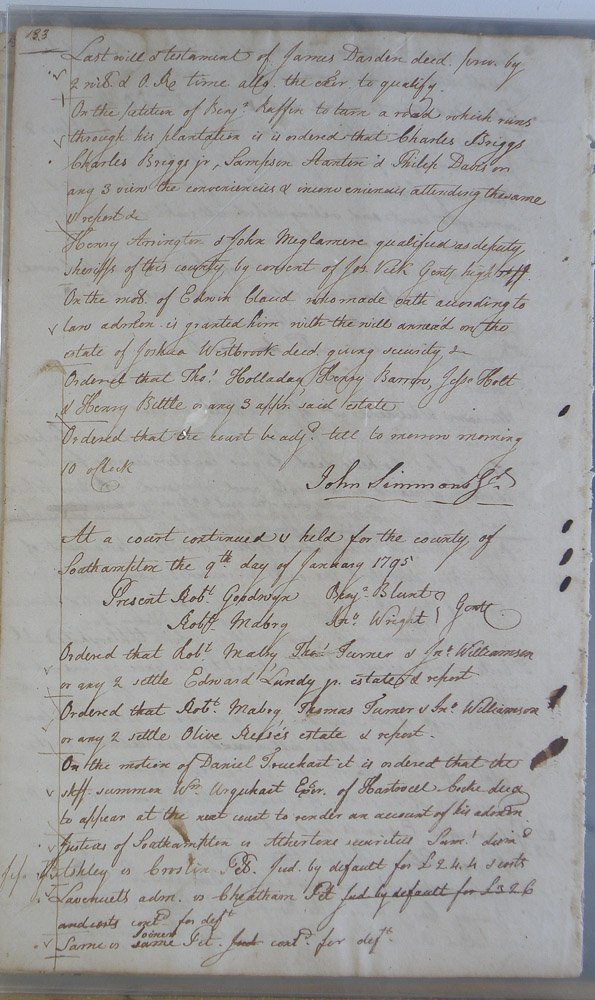 133
Last will & testament of James Darden decd. prov. by
2 wits. & O. R. time allo. the exer to qualify.
On the petition of Benja. Ruffin to turn a road which runs
through his plantation is is ordered that Charles Briggs
Charles Briggs jr, Sampson Stanton & Philip Davis or
any 3 view the conveniencies & inconveniencies attending the same
& report &c
Henry Arrington & John Meglamere qualified as deputy
sheriffs of this county by consent of Jos. Vick Gentn high shff
On the mo. of Edwin Claud who made oath according to
law admton. is granted him with the will annexd on the
estate of Joshua Westbrook decd. giving security &c
Ordered that Thos. Holladay, Henry Barrow, Jesse Holt
& Henry Bittle or any 3 appr. said estate
Ordered that the court be adjd. till to morrow morning
10 oClock
John Simmons
At a court continued & held for the county of
Southampton the 9th day of January 1795
Present Robt. Goodwyn Benja. Blunt
Robt. Mabry Jno. Wright Gent
Ordered that Robt Mabry Thos. Turner & Jno. Williamson
or any 2 settle Edward Lundy jr. estate & report
Ordered that Robt. Mabry Thomas Turner & Jno. Williamson
or any 2 settle Olive Reese's estate & report.
On the motion of Daniel it is ordered that the
shff summon Wm. Urquhart Exer. of Hartwell Cocke decd
to appear at the next court to render an account of his admton.
Justices of Southampton vs Athertons securities Sum. dismd
Ashley vs Croslin Pet. Jud. by default for £2.4.4 & costs
adm. vs Cheatham Pet Jud by default for £3.2.6
and costs contd. for deft
Same vs same Joiner Pet. Jud contd. for deft.